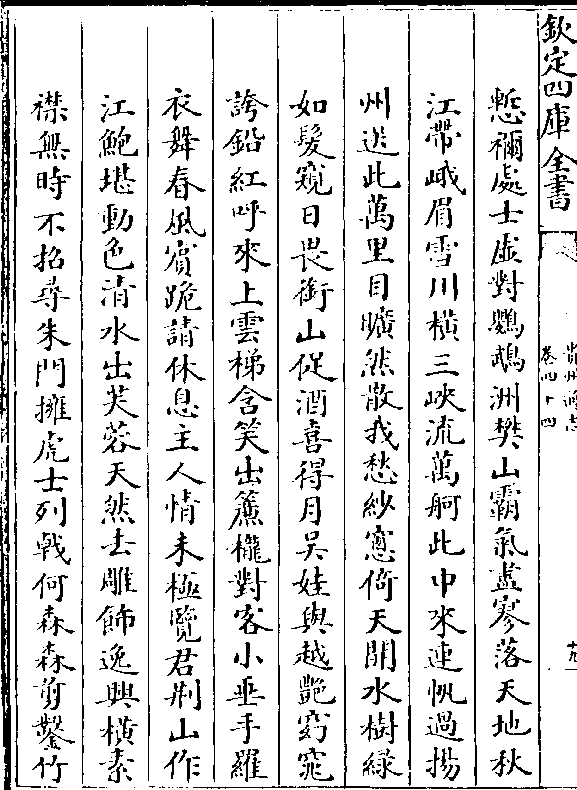 欽定四庫全書
貴州通志
卷四十四
十九
慙禰處士虛對鸚鵡洲樊山霸氣盡寥落天地秋
江帶峨眉雪川橫三峽流萬舸此中來連帆過揚
州送此萬里目曠然散我愁紗窻倚天開水樹綠
如髮窺日畏銜山促酒喜得月吳娃與越艷窈窕
誇鉛紅呼來上雲梯含笑出簾櫳對客小垂手羅
衣舞春風賓跪請休息主人情未極覽君荆山作
江鮑堪動色清水出芙蓉天然去雕飾逸興橫素
襟無時不招尋朱門擁虎士列戟何森森剪鑿竹